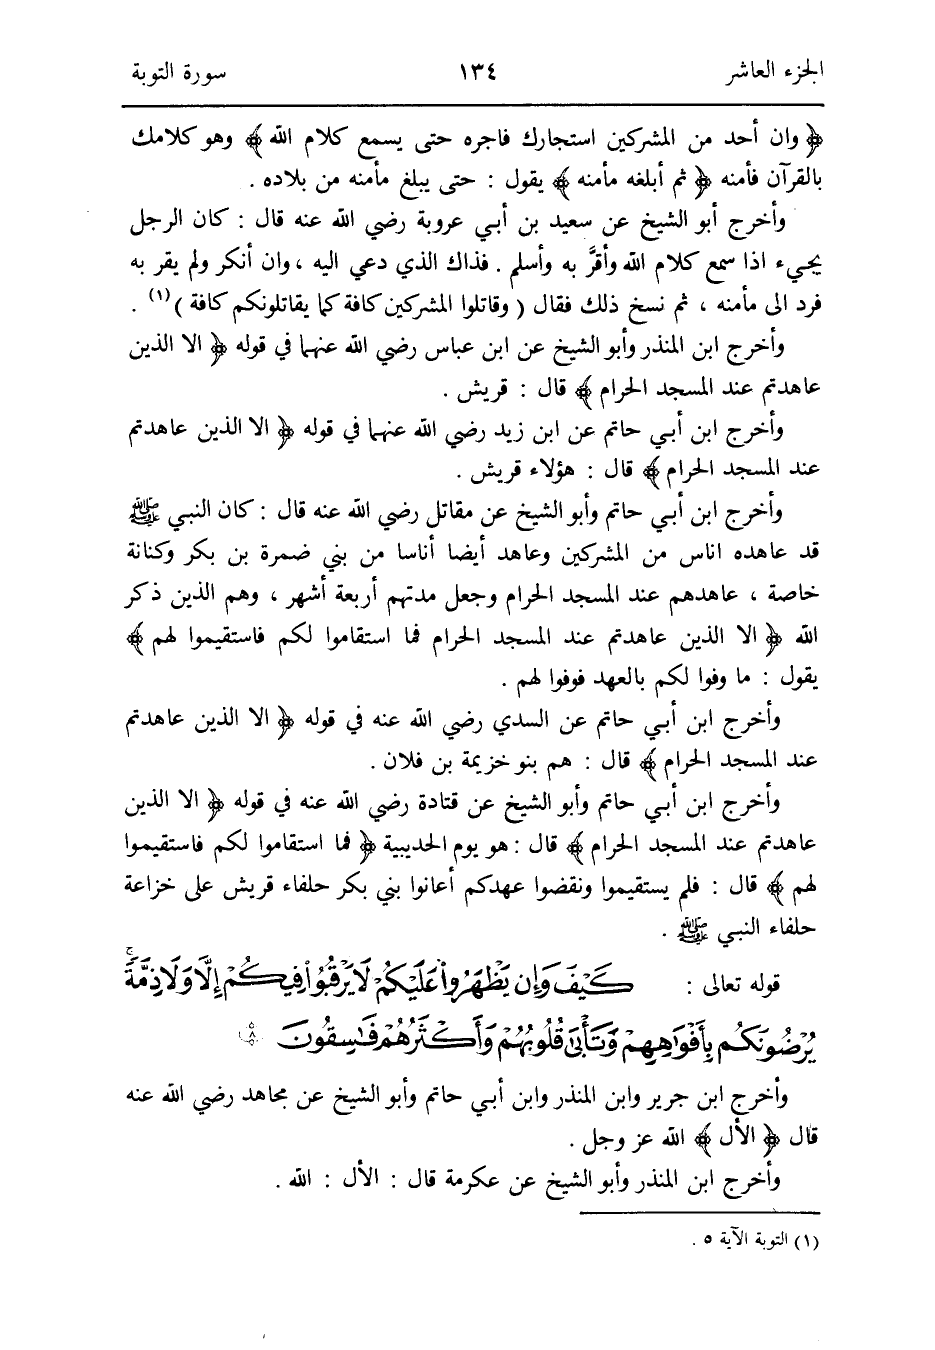 الجزء العاشر ١٣٤ سورة التوبة
﴿ وان أحد من المشركين استجارك فاجره حتى يسمع كلام الله ﴾ وهو كلامك
بالقرآن فأمنه ﴿ ثم أبلغه مأمنه ﴾ يقول : حتى يبلغ مأمنه من بلاده .
وأخرج أبو الشيخ عن سعيد بن أبي عروبة رضي الله عنه قال : كان الرجل
يجيء اذا سمع كلام الله وأقرَّ به وأسلم . فذاك الذي دعي اليه ، وان أنكر ولم يقر به
فرد الى مأمنه ، ثم نسخ ذلك فقال ( وقاتلوا المشركين كافة كما يقاتلونكم كافة ) (١) .
وأخرج ابن المنذر وأبو الشيخ عن ابن عباس رضي الله عنهما في قوله ﴿ الا الذين
عاهدتم عند المسجد الحرام ﴾ قال : قريش .
وأخرج ابن أبي حاتم عن ابن زيد رضي الله عنهما في قوله ﴿ الا الذين عاهدتم
عند المسجد الحرام ﴾ قال : هؤلاء قريش .
وأخرج ابن أبي حاتم وأبو الشيخ عن مقاتل رضي الله عنه قال : كان النبي ﷺ
قد عاهده اناس من المشركين وعاهد أيضا أناسا من بني ضمرة بن بكر وكنانة
خاصة ، عاهدهم عند المسجد الحرام وجعل مدتهم أربعة أشهر ، وهم الذين ذكر
الله ﴿ الا الذين عاهدتم عند المسجد الحرام فما استقاموا لكم فاستقيموا لهم ﴾
يقول : ما وفوا لكم بالعهد فوفوا لهم .
وأخرج ابن أبي حاتم عن السدي رضي الله عنه في قوله ﴿ الا الذين عاهدتم
عند المسجد الحرام ﴾ قال : هم بنو خزيمة بن فلان .
وأخرج ابن أبي حاتم وأبو الشيخ عن قتادة رضي الله عنه في قوله ﴿ الا الذين
عاهدتم عند المسجد الحرام ﴾ قال : هو يوم الحديبية ﴿ فما استقاموا لكم فاستقيموا
لهم ﴾ قال : فلم يستقيموا ونقضوا عهدكم أعانوا بني بكر حلفاء قريش على خزاعة
حلفاء النبي ﷺ .
قوله تعالى : كَيْفَ وَإِن يَظْهَرُوا۟ عَلَيْكُمْ لَا يَرْقُبُوا۟ فِيكُمْ إِلًّا وَلَا ذِمَّةً ۚ
يُرْضُونَكُم بِأَفْوَٰهِهِمْ وَتَأْبَىٰ قُلُوبُهُمْ وَأَكْثَرُهُمْ فَٰسِقُونَ ٨
وأخرج ابن جرير وابن المنذر وابن أبي حاتم وأبو الشيخ عن مجاهد رضي الله عنه
قال ﴿ الأل ﴾ الله عز وجل .
وأخرج ابن المنذر وأبو الشيخ عن عكرمة قال : الأل : الله .
(١) التوبة الآية ٥ .